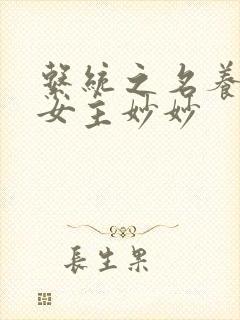 繫統之名養
女主妙妙
長生果